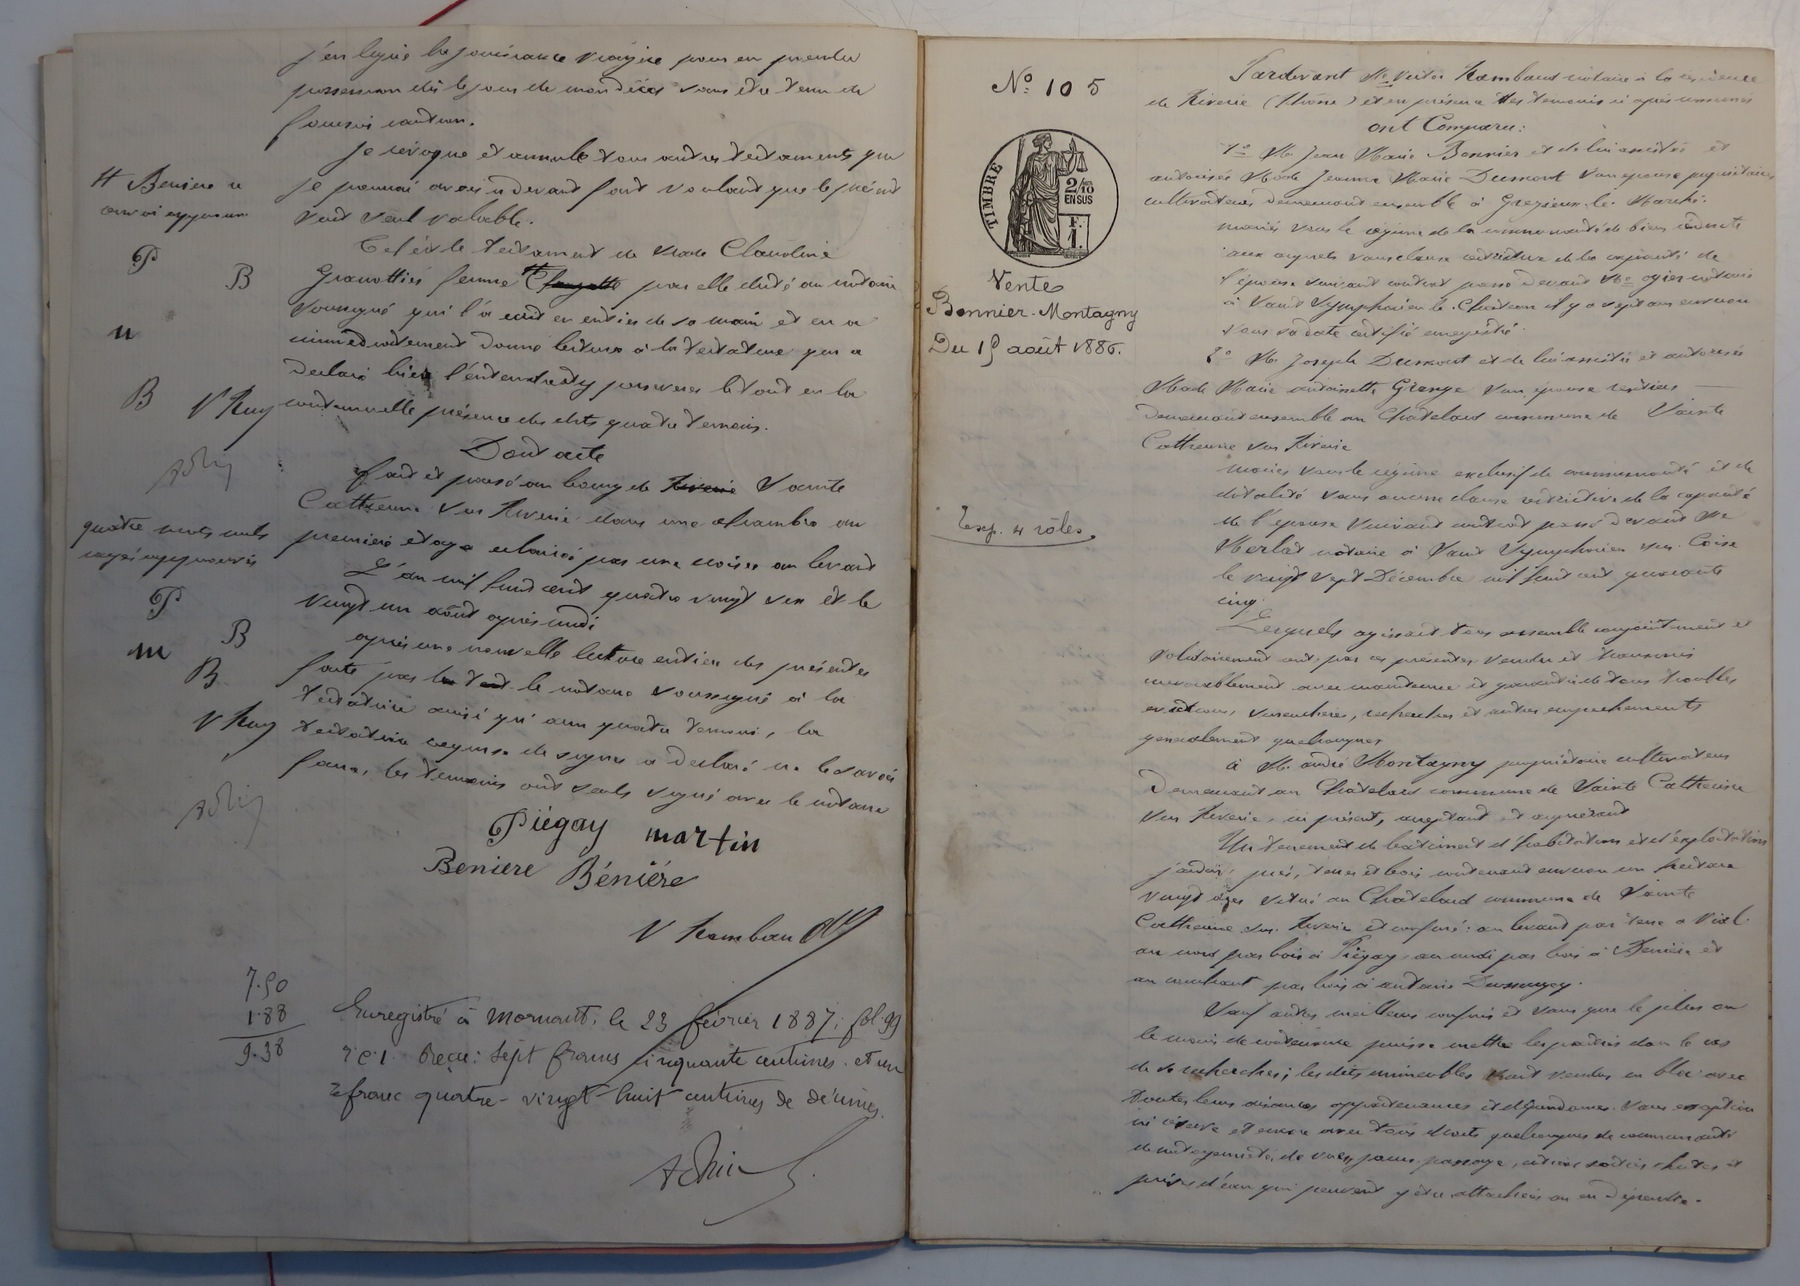 j'en lègue la jouissance viagère pour en prendre
possession dès le jour de mon décès sans être tenu de
fournir caution.
Je révoque et annule tous autres testaments que
je pourrai avoir ci devant fait voulant que le présent
soit seul valable.
Tel est le testament de Made Claudine
femme par elle dicté au notaire
soussigné qui l'a écrit en entier de sa main et en a
immédiatement donné lecture à la testatrice qui a
déclaré bien l'entendre et y persévérer le tout en la
continuelle présence des dits quatre témoins.
Dont acte
fait et passé au bourg de Riverie Sainte
Catherine sur Riverie dans une chambre au
premier étage éclairée par une croisée au levant
L'an mil huit cent quatre vingt six et le
vingt un août après midi
après une nouvelle lecture entière des présentes
faite par le notaire soussigné à la
testatrice ainsi qu'aux quatre témoins, la
testatrice requise de signer a déclaré ne le savoir
faire, les témoins ont seuls signé avec le notaire
Piégay martin
Beniere Béniére
V Rambaud
H Beniere
P
B
m
B V Ray
quatre mots nuls
rayés approuvés
P
B
m
B
V Ray
7.50
1.88
9.38
Enregistré à Mornant, le 23 février 1887, fol. 99
r c 1 Reçu: Sept francs cinquante centimes et un
franc quatre-vingt huit centimes de décimes.
No 105
TIMBRE
2/10 EN SUS
F. 1.
Vente
Bonnier-Montagny
Du 15 août 1886.
Exp. 4 rôles
Pardevant Me Victor Rambaud notaire à la résidence
de Riverie (Rhône) et en présence des témoins ci après nommés
ont Comparu:
1o M. Jean Marie Bonnier et de lui assistée et
autorisée Made Jeanne Marie Dumont son épouse propriétaires
cultivateurs demeurant ensemble à Grezieu-le-Marché.
mariés sous le régime de la communauté de biens réduite
aux acquets sans clause restrictive de la capacité de
l'épouse suivant contrat passé devant Me Ogier notaire
à Saint Symphorien le Château il y a sept ans environ
sous sa date certifié enregistré.
2o M. Joseph Dumont et de lui assistée et autorisée
Made Marie antoinette Grange son épouse rentiers
demeurant ensemble au Châtelard commune de Sainte
Catherine sur Riverie
mariés sous le régime exclusif de communauté et de
dotalité sans aucune clause restrictive de la capacité
de l'épouse suivant contrat passé devant Me
notaire à Saint Symphorien sur Coise
le vingt sept Décembre mil huit cent quarante
cinq.
Lesquels agissant tous ensemble conjointement et
solidairement ont par ces présentes vendu et transmis
irrévocablement avec maintenue et garantie de tous troubles
évictions, surenchères, recherches et autres empêchements
généralement quelconques
à M. andré Montagny propriétaire cultivateur
demeurant au Châtelard commune de Sainte Catherine
sur Riverie, ici présent, acceptant et acquérant
Un tenement de bâtiment d'habitation et d'exploitation
jardin, prés, terres et bois contenant environ un hectare
vingt ares situé au Châtelard commune de Sainte
Catherine sur Riverie et confiné: au levant par terre à Vial
au nord par bois à Piégay, au midi par bois à Benière et
au couchant par bois à antoine
Sauf autres meilleurs confins et sans que le plus ou
le moins de contenance puisse mettre les parties dans le cas
de se rechercher; les dits immeubles sont vendus en bloc avec
toutes leurs aisances appartenances et dépendances sans exception
ni réserve et encore avec tous droits quelconques de communauté
de mitoyenneté, de vues, jours, passage, entrées sorties chutes et
prises d'eau qui peuvent y être attachées ou en dépendre.